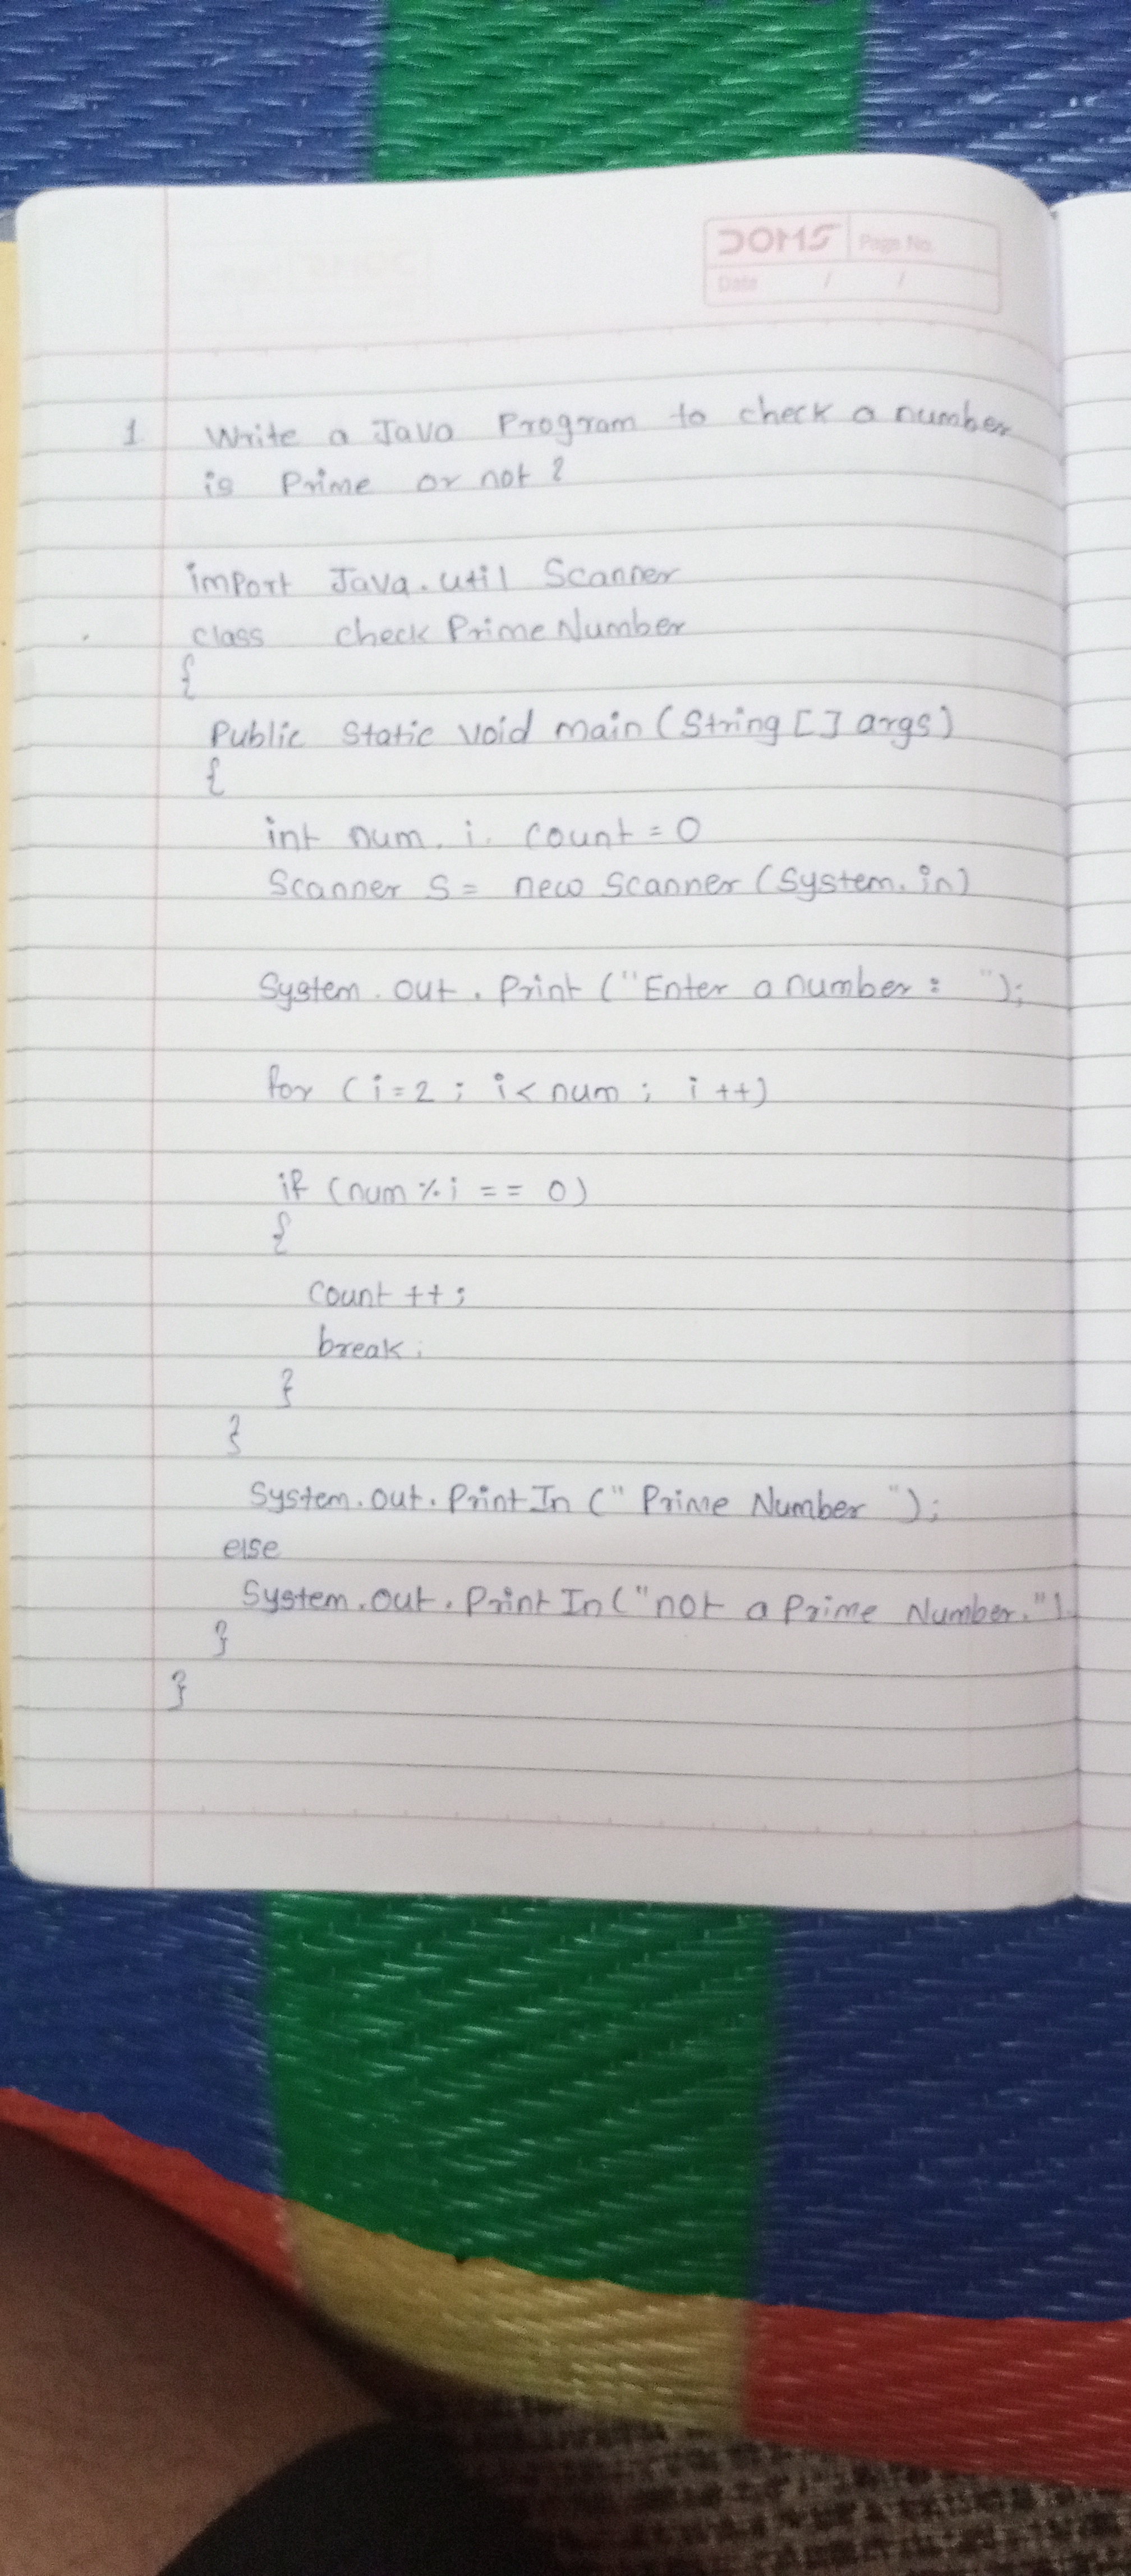 DOMS Page No.
Date / /
1 Write a Java Program to check a number
is Prime or not ?
import Java.util Scanner
class check Prime Number
{
Public Static void main (String [] args)
{
int num. i. count = 0
Scanner S = new Scanner (System.in)
System.out.Print ("Enter a number : ");
for (i=2 ; i< num ; i ++)
if (num % i == 0)
{
count ++ ;
break;
}
}
System.out.Print In (" Prime Number ");
else
System.out.Print In ("not a Prime Number.")
}
}